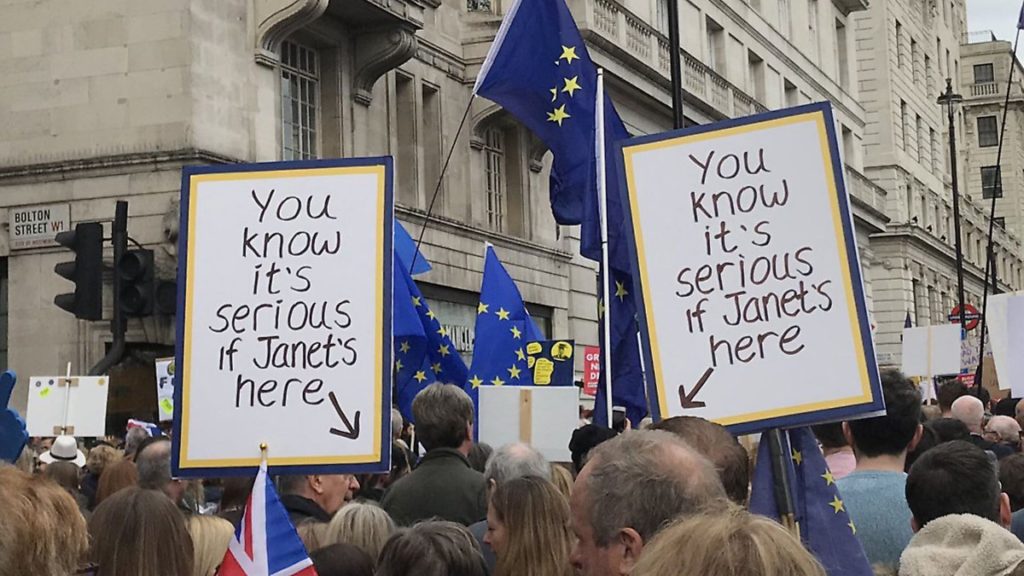 BOLTON
STREET W1
CITY OF WESTMINSTER
You
know
it's
serious
if Janet's
here
You
know
it's
serious
if Janet's
here